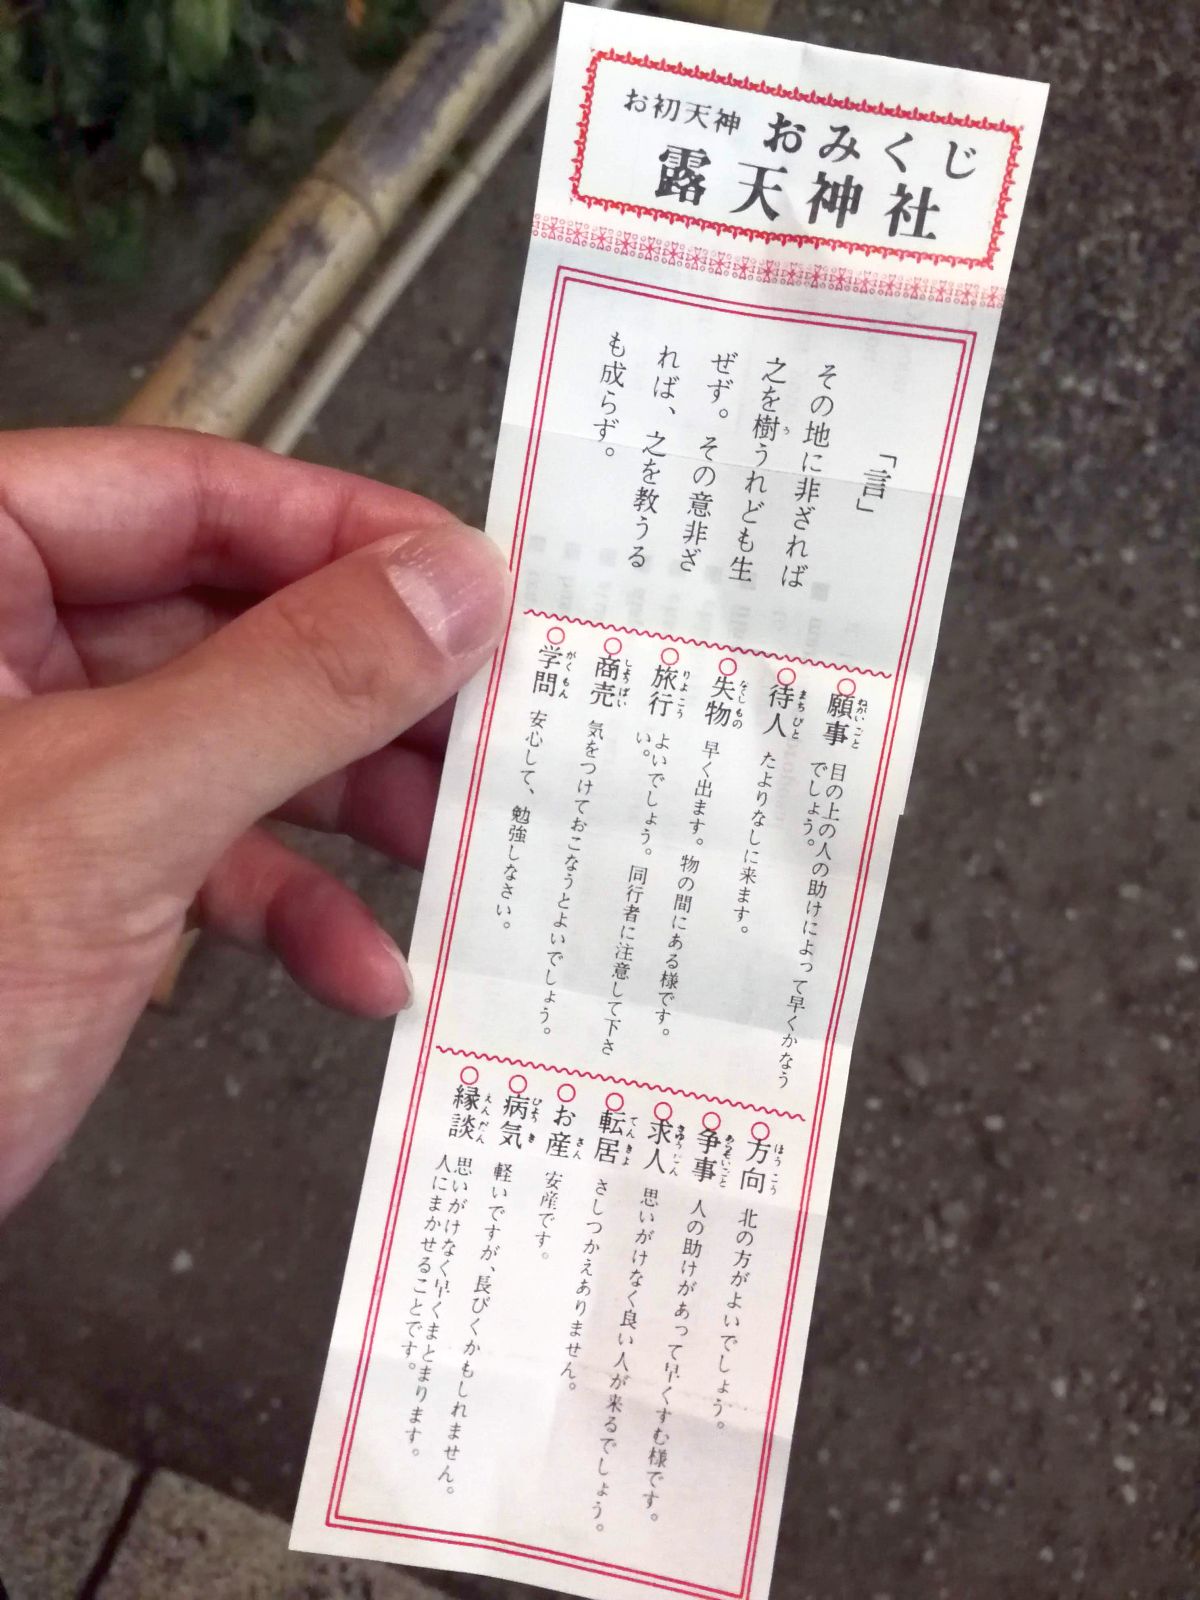 お初天神 おみくじ
露天神社
「言」
その地に非ざれば
之を樹うれども生
ぜず。その意非ざ
れば、之を教うる
も成らず。
願事 目の上の人の助けによって早くかなう
でしょう。
待人 たよりなしに来ます。
失物 早く出ます。物の間にある様です。
旅行 よいでしょう。同行者に注意して下さ
い。
商売 気をつけておこなうとよいでしょう。
学問 安心して、勉強しなさい。
方向 北の方がよいでしょう。
争事 人の助けがあって早くすむ様です。
求人 思いがけなく良い人が来るでしょう。
転居 さしつかえありません。
お産 安産です。
病気 軽いですが、長びくかもしれません。
縁談 思いがけなく早くまとまります。
人にまかせることです。